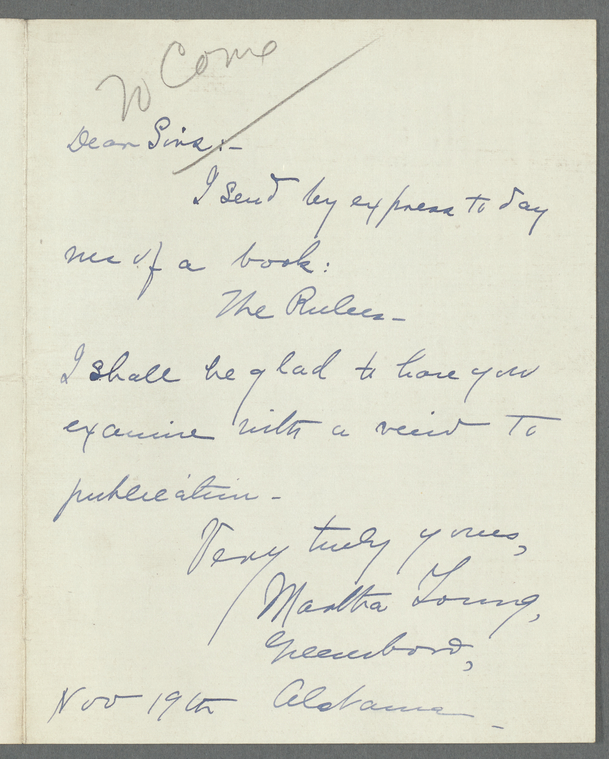 To Come
Dear Sirs:-
I send by express to day
ms of a book:
The Rulers -
I shall be glad to have you
examine with a view to
publication -
Very truly yours,
Martha Young,
Greensboro,
Nov 19th Alabama -